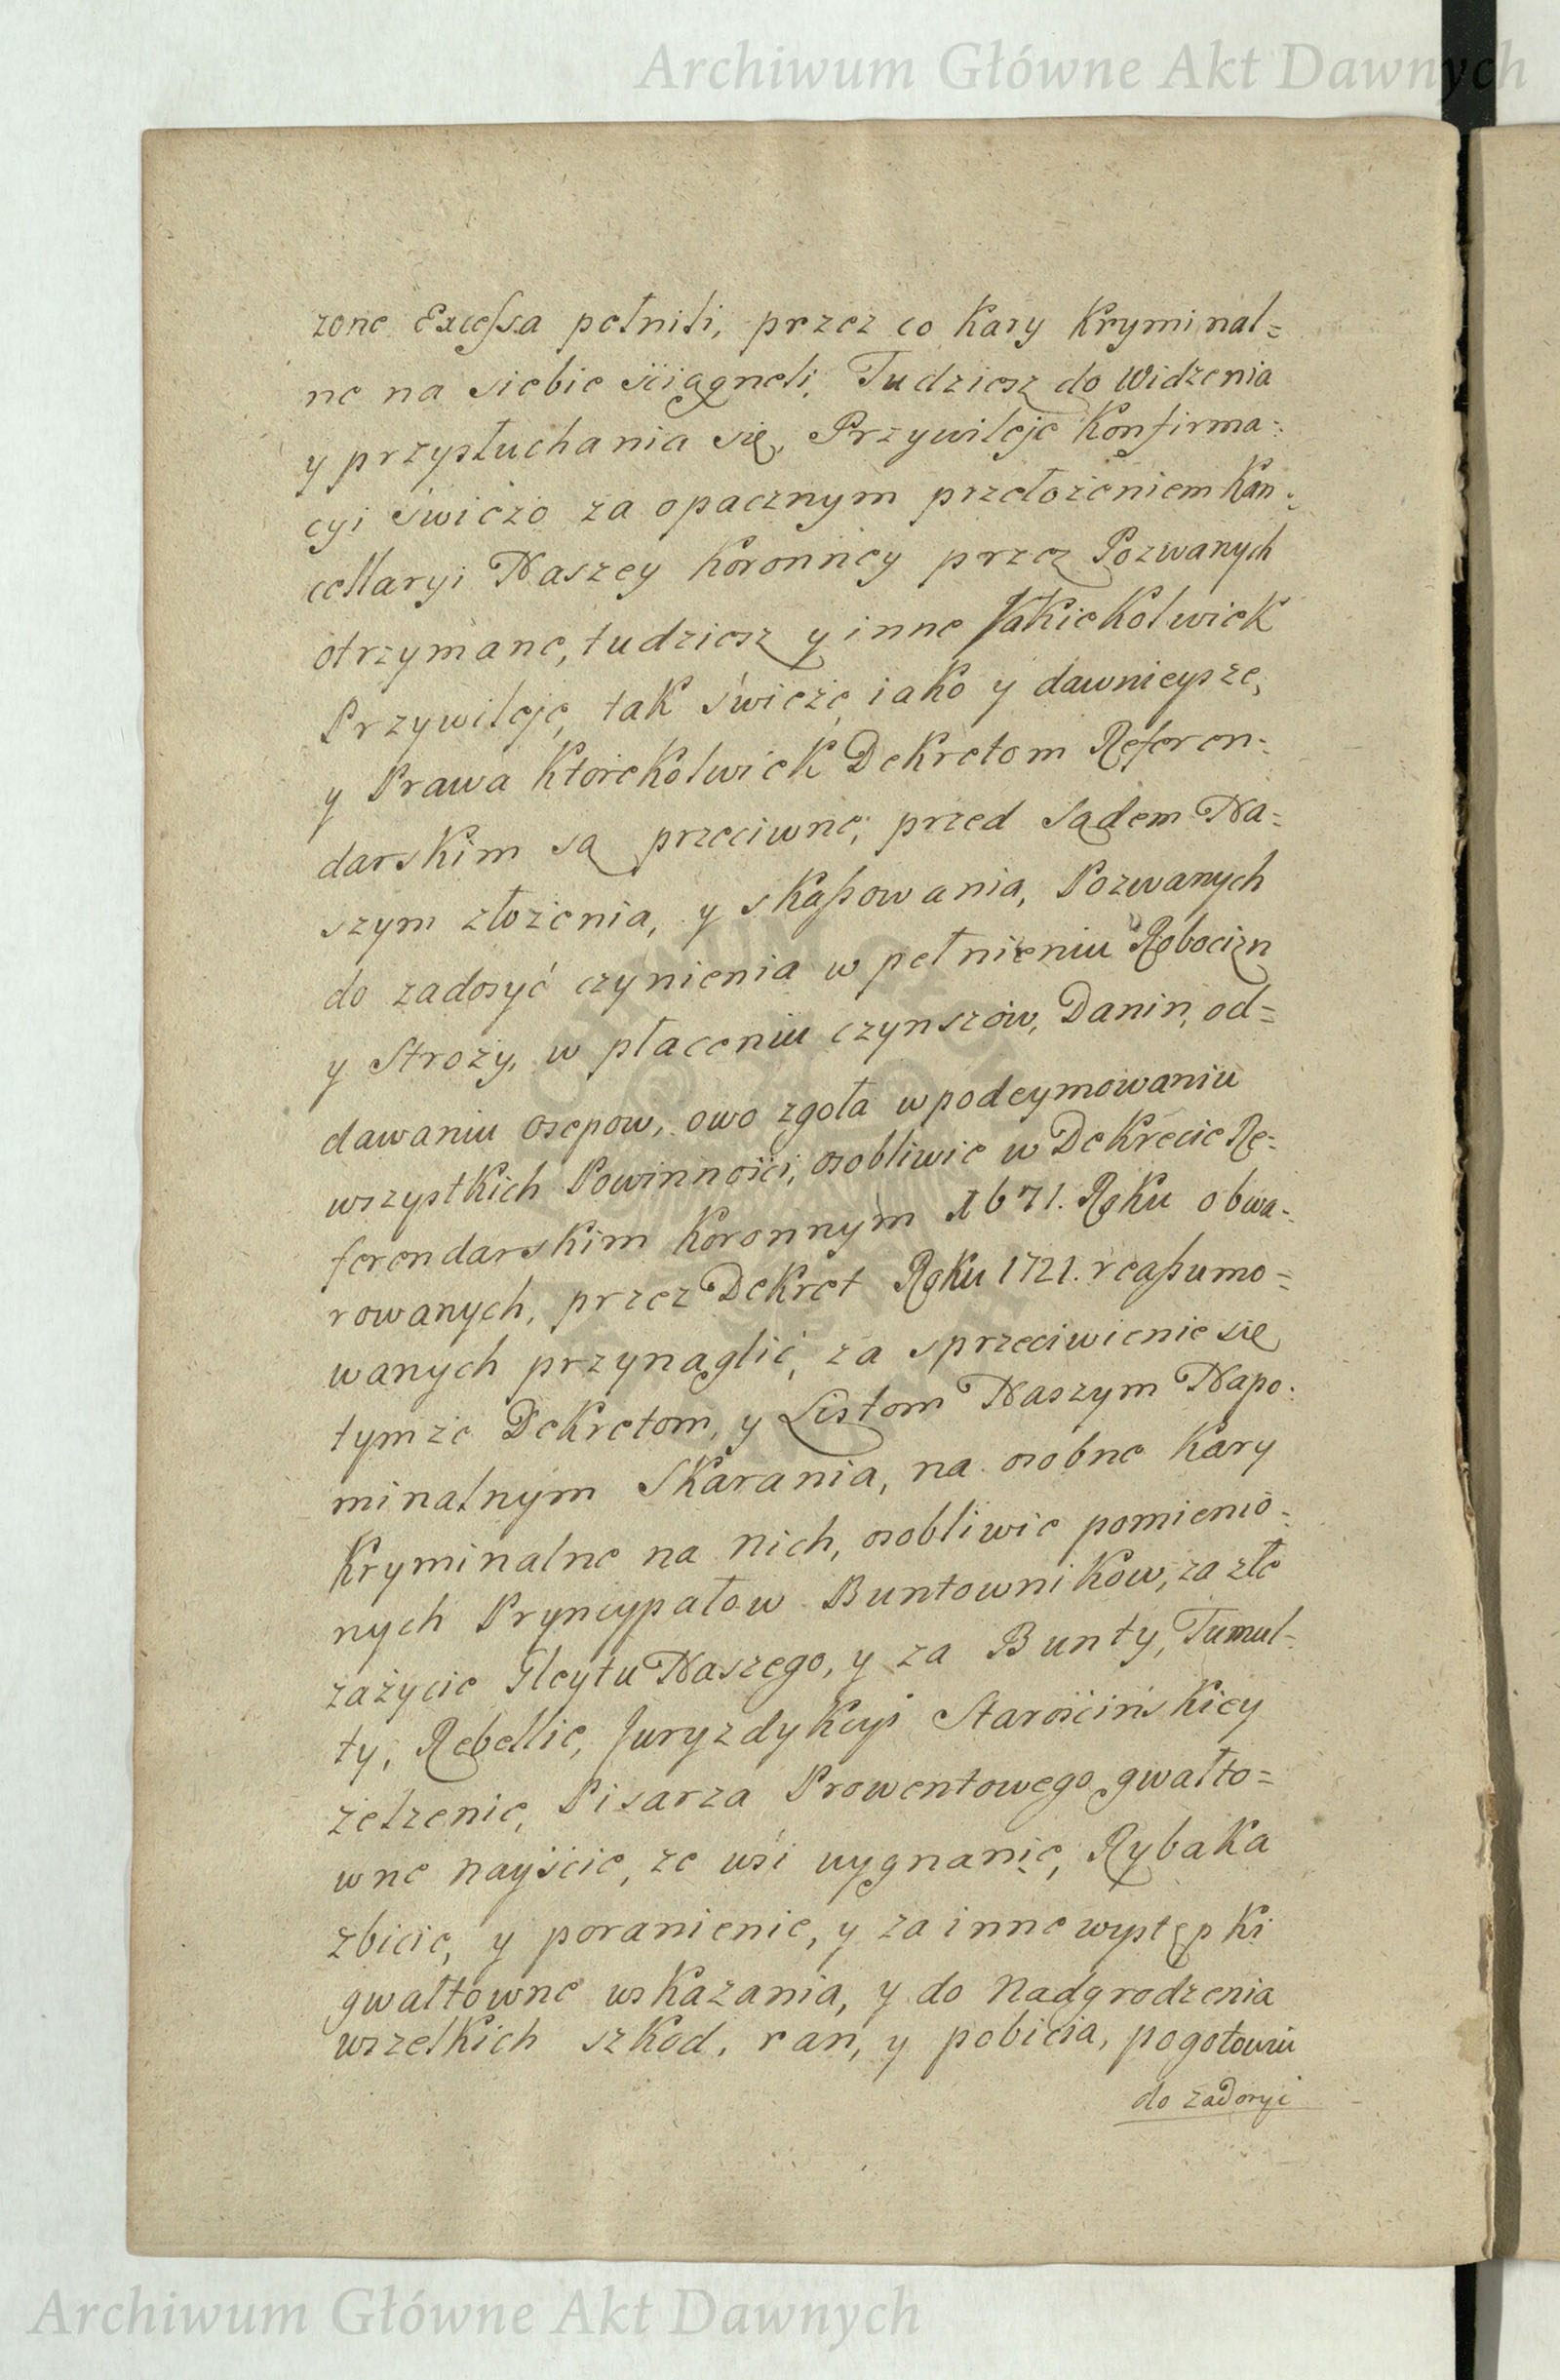 Archiwum Główne Akt Dawnych
zone Excessa pełnili, przez co Kary Kryminal=
ne na siebie sciągneli, Tudziesz do Widzenia
y przysłuchania się, Przywileje Konfirma=
cyi świeżo za opacznym przełożeniem Kan=
cellaryi Naszey Koronney przez Pozwanych
otrzymane, tudziesz y inne Jakiekolwiek
Przywileje, tak świeże, iako y dawnieysze,
y Prawa Ktorekolwiek Dekretom Referen=
darskim są przeciwne; przed Sądem Na=
szym złożenia, y skassowania, Pozwanych
do zadosyć czynienia w pełnieniu Robocizn
y Stroży, w płaceniu czynszów, Danin, od=
dawaniu osepow, owo zgoła w podeymowaniu
wszystkich Powinności, osobliwie w Dekrecie Re=
ferendarskim Koronnym 1671. Roku obwa=
rowanych, przez Dekret Roku 1721. reassumo=
wanych przynaglić, za sprzeciwienie się
tymże Dekretom, y Listom Naszym Napo=
minalnym Skarania, na osobne Kary
Kryminalne na nich, osobliwie pomienio=
nych Pryncypałow Buntownikow, za złe
zażycie Gleytu Naszego, y za Bunty, Tumul=
ty, Rebellie, Juryzdykcyi Starościńskiey
zelżenie, Pisarza Prowentowego gwałto=
wne nayście, ze wsi wygnanie, Rybaka
zbicie, y poranienie, y za inne występki
gwałtowne wskazania, y do Nadgrodzenia
wszelkich szkod, ran, y pobicia, pogotowiu
do zadosyć
Archiwum Główne Akt Dawnych